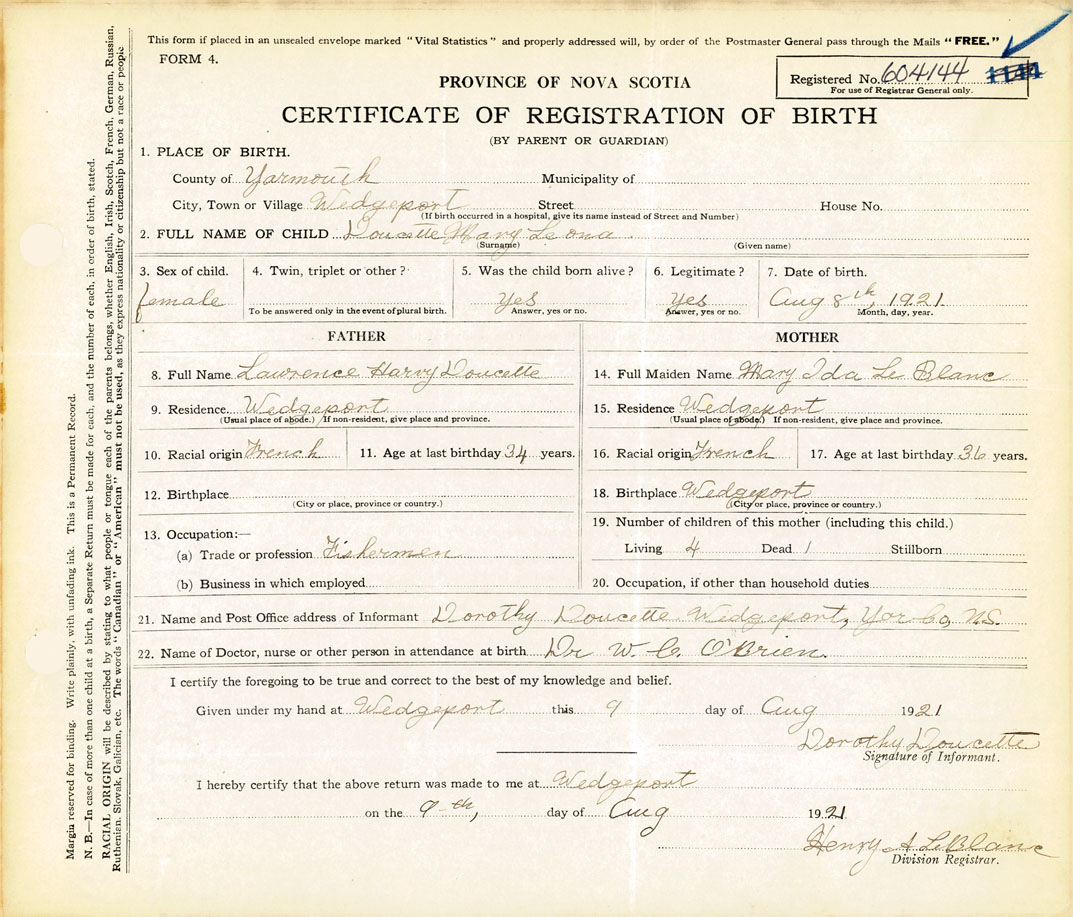 This form if placed in an unsealed envelope marked "Vital Statistics" and properly addressed will, by order of the Postmaster General pass through the Mails "FREE."
FORM 4.
Registered No. 604144 1144
For use of Registrar General only.
PROVINCE OF NOVA SCOTIA
CERTIFICATE OF REGISTRATION OF BIRTH
(BY PARENT OR GUARDIAN)
1. PLACE OF BIRTH.
County of Yarmouth Municipality of
City, Town or Village Wedgeport Street House No.
(If birth occurred in a hospital, give its name instead of Street and Number)
2. FULL NAME OF CHILD Doucette Mary Leona
(Surname) (Given name)
3. Sex of child. 4. Twin, triplet or other? 5. Was the child born alive? 6. Legitimate? 7. Date of birth.
female Yes Yes Aug 8th, 1921
To be answered only in the event of plural birth. Answer, yes or no. Answer, yes or no. Month, day, year.
FATHER
8. Full Name Lawrence Harvy Doucette
9. Residence Wedgeport
(Usual place of abode.) If non-resident, give place and province.
10. Racial origin French 11. Age at last birthday 34 years.
12. Birthplace
(City or place, province or country.)
13. Occupation:—
(a) Trade or profession Fishermen
(b) Business in which employed
MOTHER
14. Full Maiden Name Mary Ida Le Blanc
15. Residence Wedgeport
(Usual place of abode.) If non-resident, give place and province.
16. Racial origin French 17. Age at last birthday 36 years.
18. Birthplace Wedgeport
(City or place, province or country.)
19. Number of children of this mother (including this child.)
Living 4 Dead 1 Stillborn
20. Occupation, if other than household duties
21. Name and Post Office address of Informant Dorothy Doucette Wedgeport, Yar Co, N.S.
22. Name of Doctor, nurse or other person in attendance at birth Dr W. C. O'Brien.
I certify the foregoing to be true and correct to the best of my knowledge and belief.
Given under my hand at Wedgeport this 9 day of Aug 1921
Dorothy Doucette
Signature of Informant.
I hereby certify that the above return was made to me at Wedgeport
on the 9th, day of Aug 1921
Henry A LeBlanc
Division Registrar.
Margin reserved for binding. Write plainly, with unfading ink. This is a Permanent Record.
N. B.—In case of more than one child at a birth, a Separate Return must be made for each, and the number of each, in order of birth, stated.
RACIAL ORIGIN will be described by stating to what people or tongue each of the parents belongs, whether English, Irish, Scotch, French, German, Russian,
Ruthenian, Slovak, Galician, etc. The words "Canadian" or "American" must not be used, as they express nationality or citizenship but not a race or people